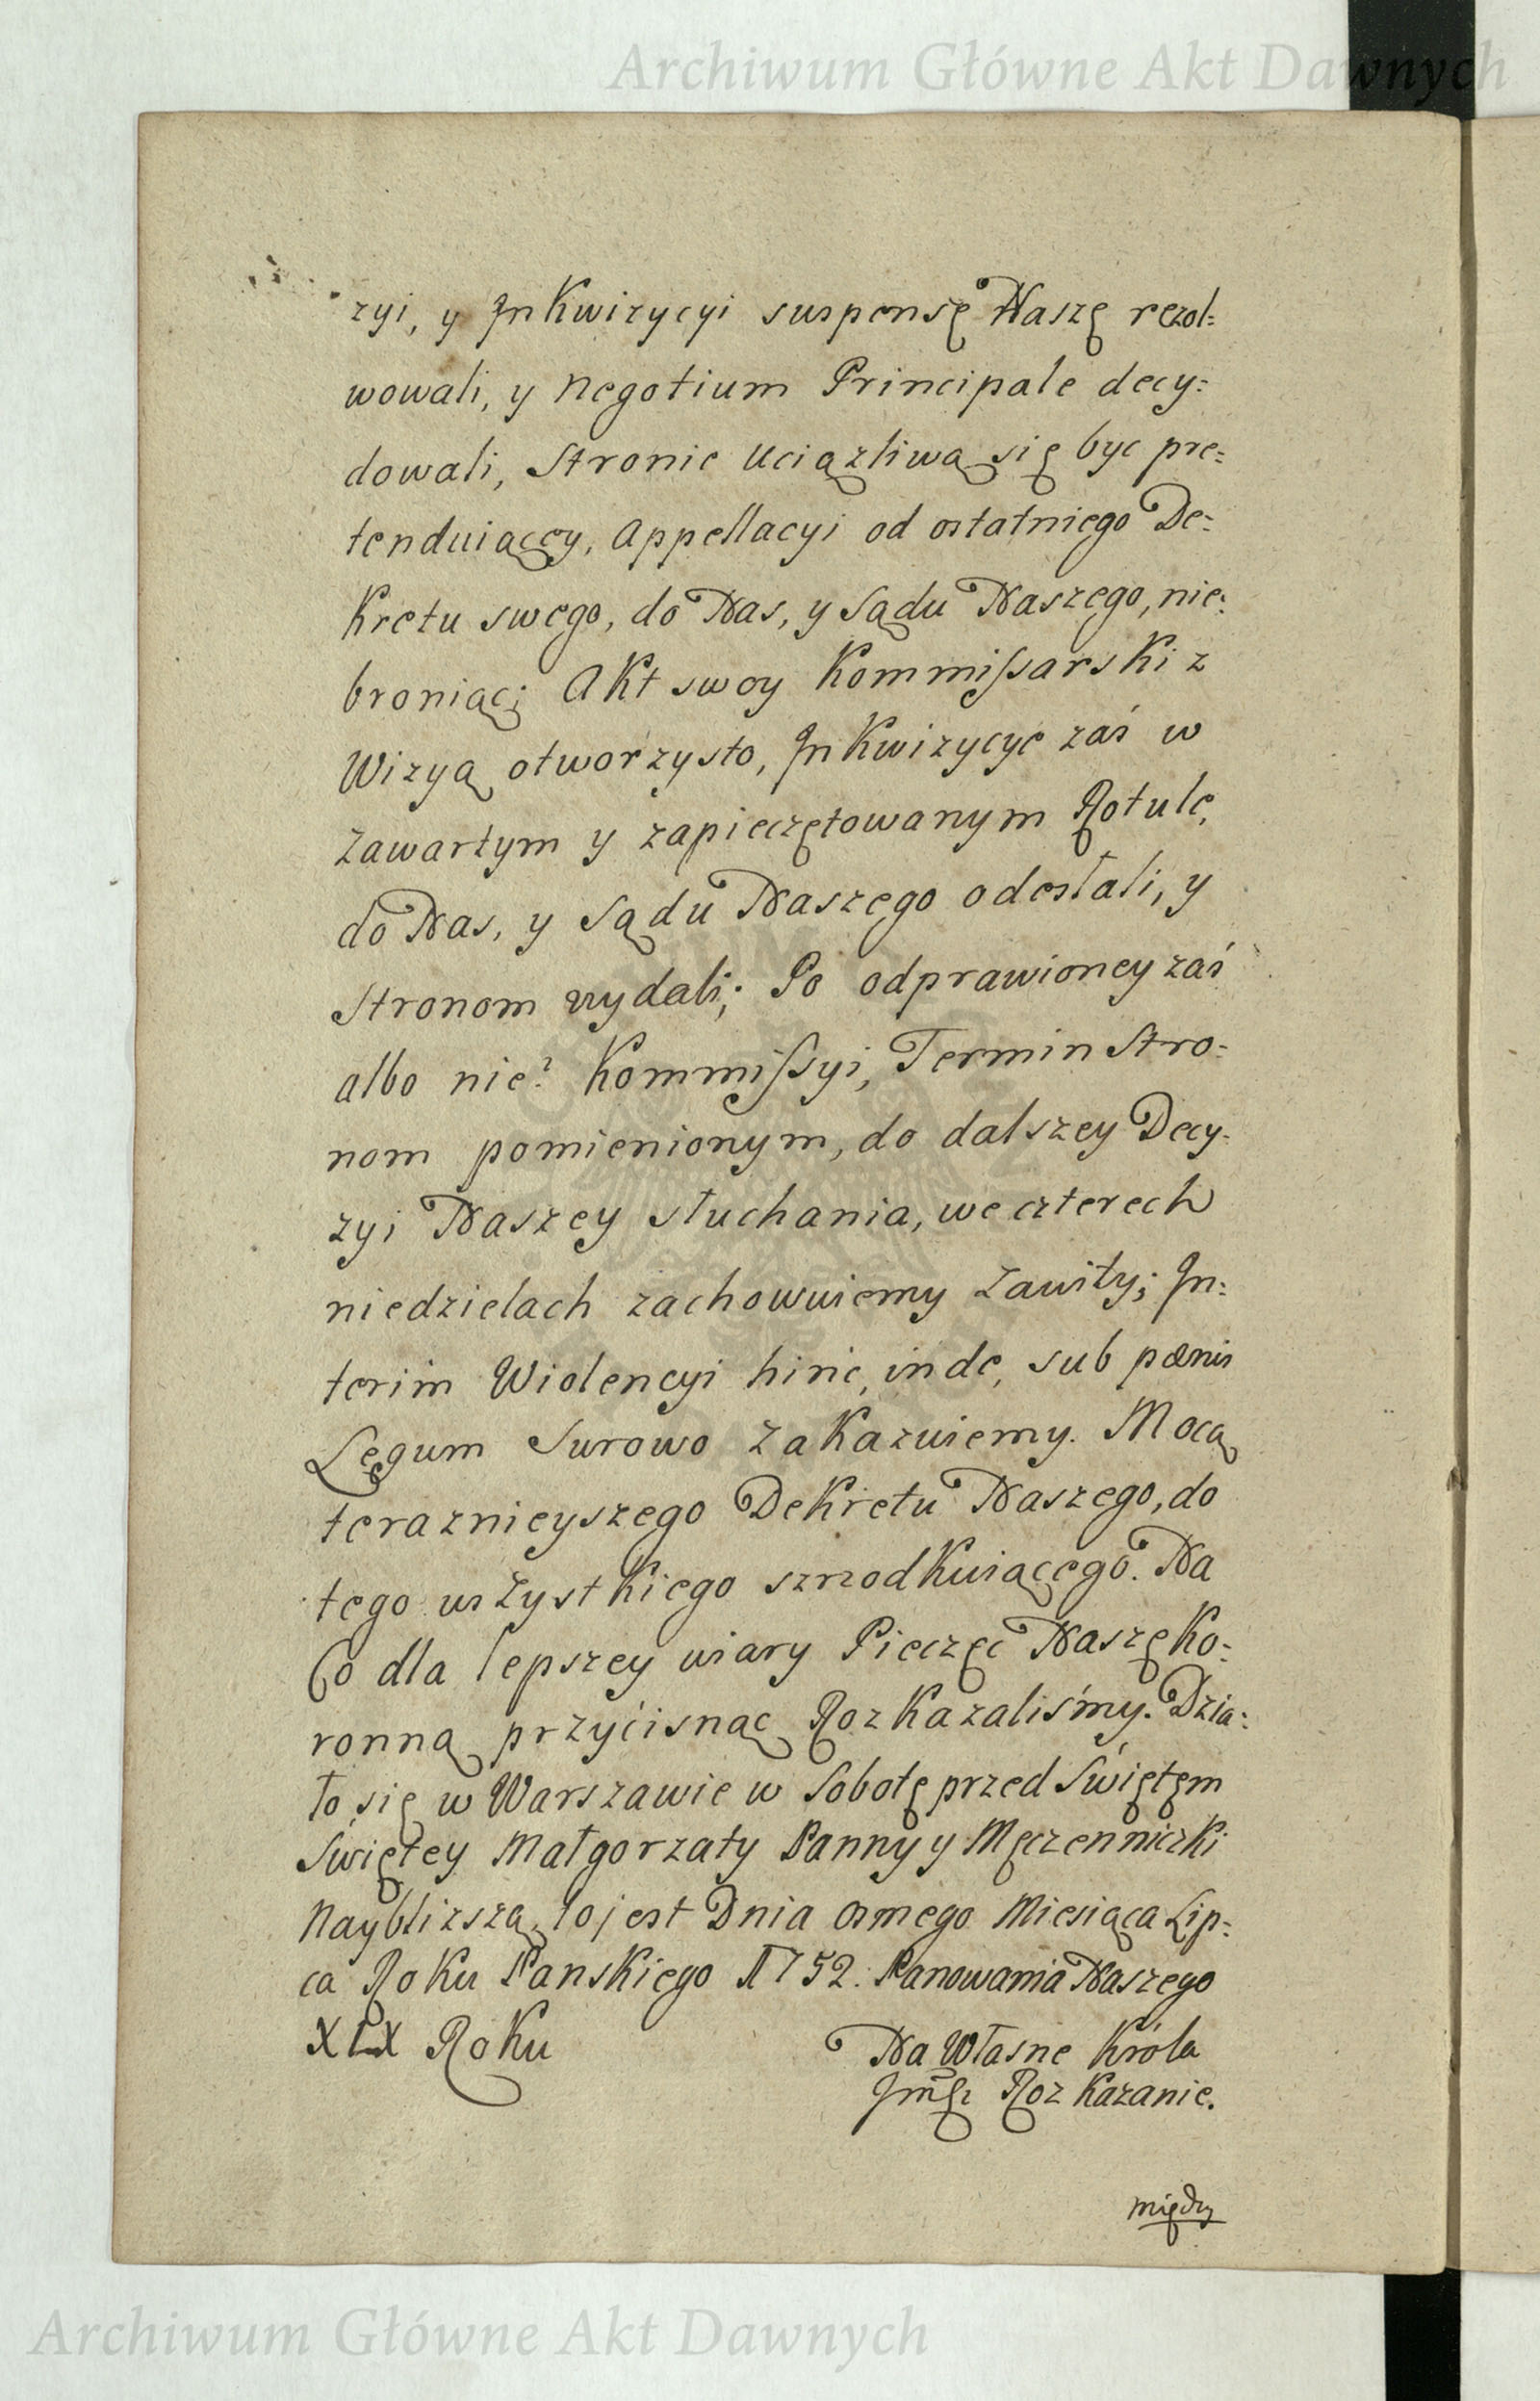 Archiwum Główne Akt Dawnych
zyi, y InKwizycyi suspensę Naszę rezol=
wowali, y negotium Principale decy=
dowali, Stronie uciązliwą się byc pre=
tenduiącey, Appellacyi od ostatniego De=
Kretu swego, do Nas, y Sądu Naszego, nie=
broniąc; AKt swoy Kommissarski z
Wizyą otworzysto, InKwizycye zaś w
Zawartym y zapieczętowanym Rotule,
do Nas, y Sądu Naszego odesłali, y
Stronom wydali; Po odprawioney zaś
albo nie? Kommissyi, Termin Stro=
nom pomienionym, do dalszey Decy=
zyi Naszey słuchania, we czterech
niedzielach zachowuiemy Zawity; In=
terim Wiolencyi hinc, inde, sub pænis
Legum Surowo ZaKazuiemy. Mocą
teraznieyszego DeKretu Naszego, do
tego wszystKiego szrzodKuiącego. Na
Co dla lepszey wiary Pieczęc Naszę Ko=
ronną przyćisnąc RozKazaliśmy. Dzia=
ło się w Warszawie w Sobotę przed Świętem
Świętey Małgorzaty Panny y Męczenniczki
Naybliższą, to jest Dnia osmego Miesiąca Lip=
ca Roku Panskiego 1752. Panowania Naszego
XIX RoKu
Na Własne Króla
Jmći RozKazanie.
między
Archiwum Główne Akt Dawnych